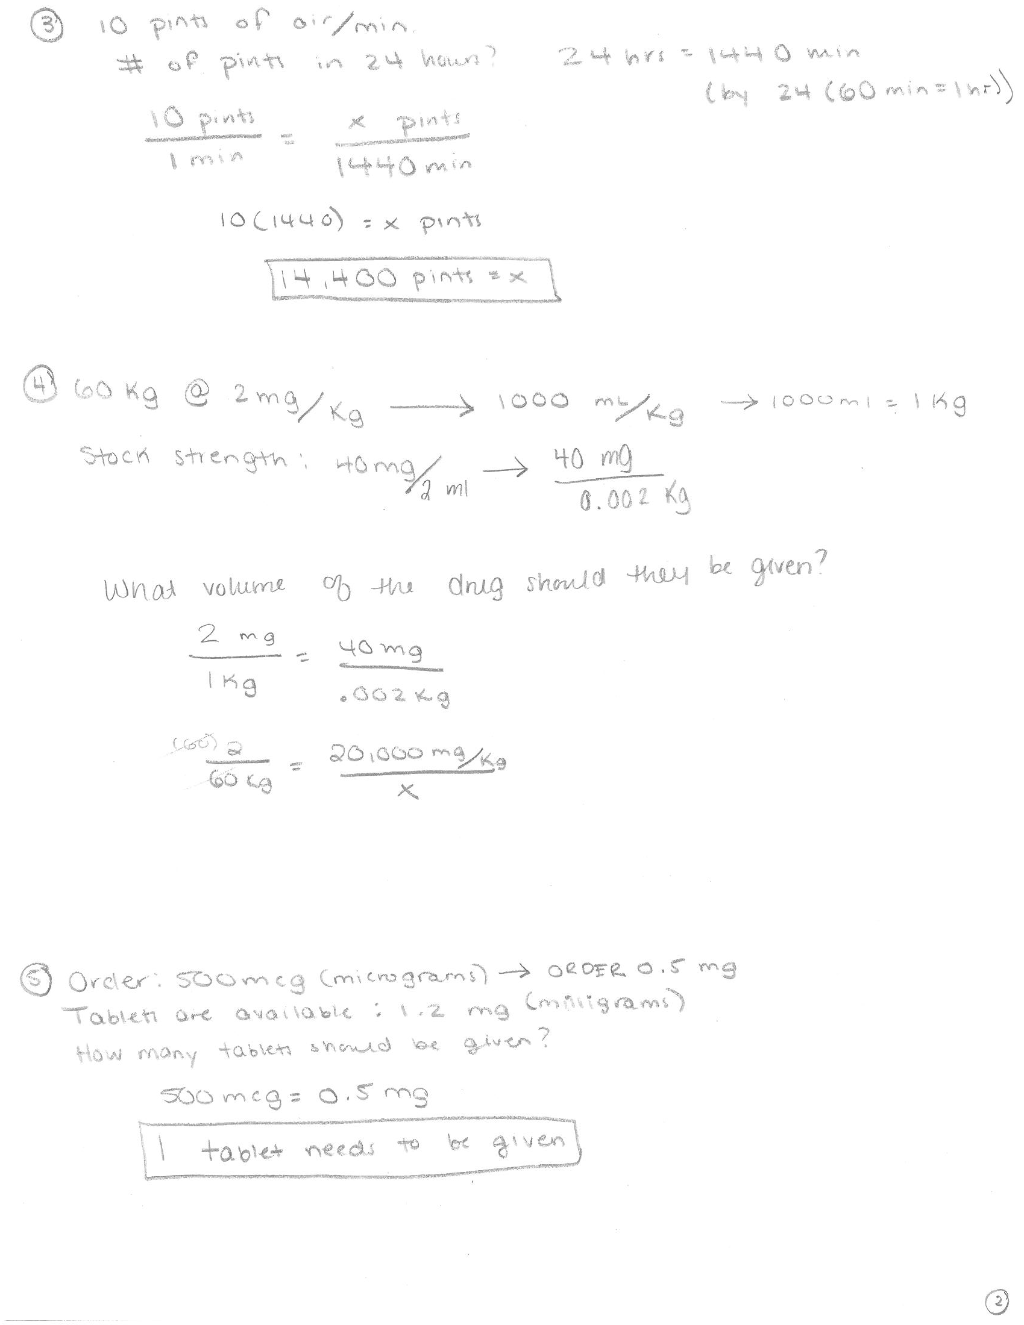 3 10 pints of air/min.
# of pints in 24 hours? 24 hrs = 1440 min
(by 24 (60 min = 1 hr))
10 pints / 1 min = x pints / 1440 min
10(1440) = x pints
14,400 pints = x
4 60 kg @ 2 mg/kg → 1000 mL/kg → 1000 ml = 1 kg
Stock strength: 40mg/2 ml → 40 mg / 0.002 kg
What volume of the drug should they be given?
2 mg / 1 kg = 40 mg / .002 kg
(60) 2 / 60 kg = 20,000 mg/kg / x
5 Order: 500 mcg (micrograms) → ORDER 0.5 mg
Tablets are available: 1.2 mg (milligrams)
How many tablets should be given?
500 mcg = 0.5 mg
1 tablet needs to be given
2